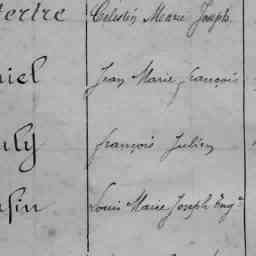 tertre Celestin Marie Joseph
niel Jean Marie françois
françois Julien
Louis Marie Joseph Eug